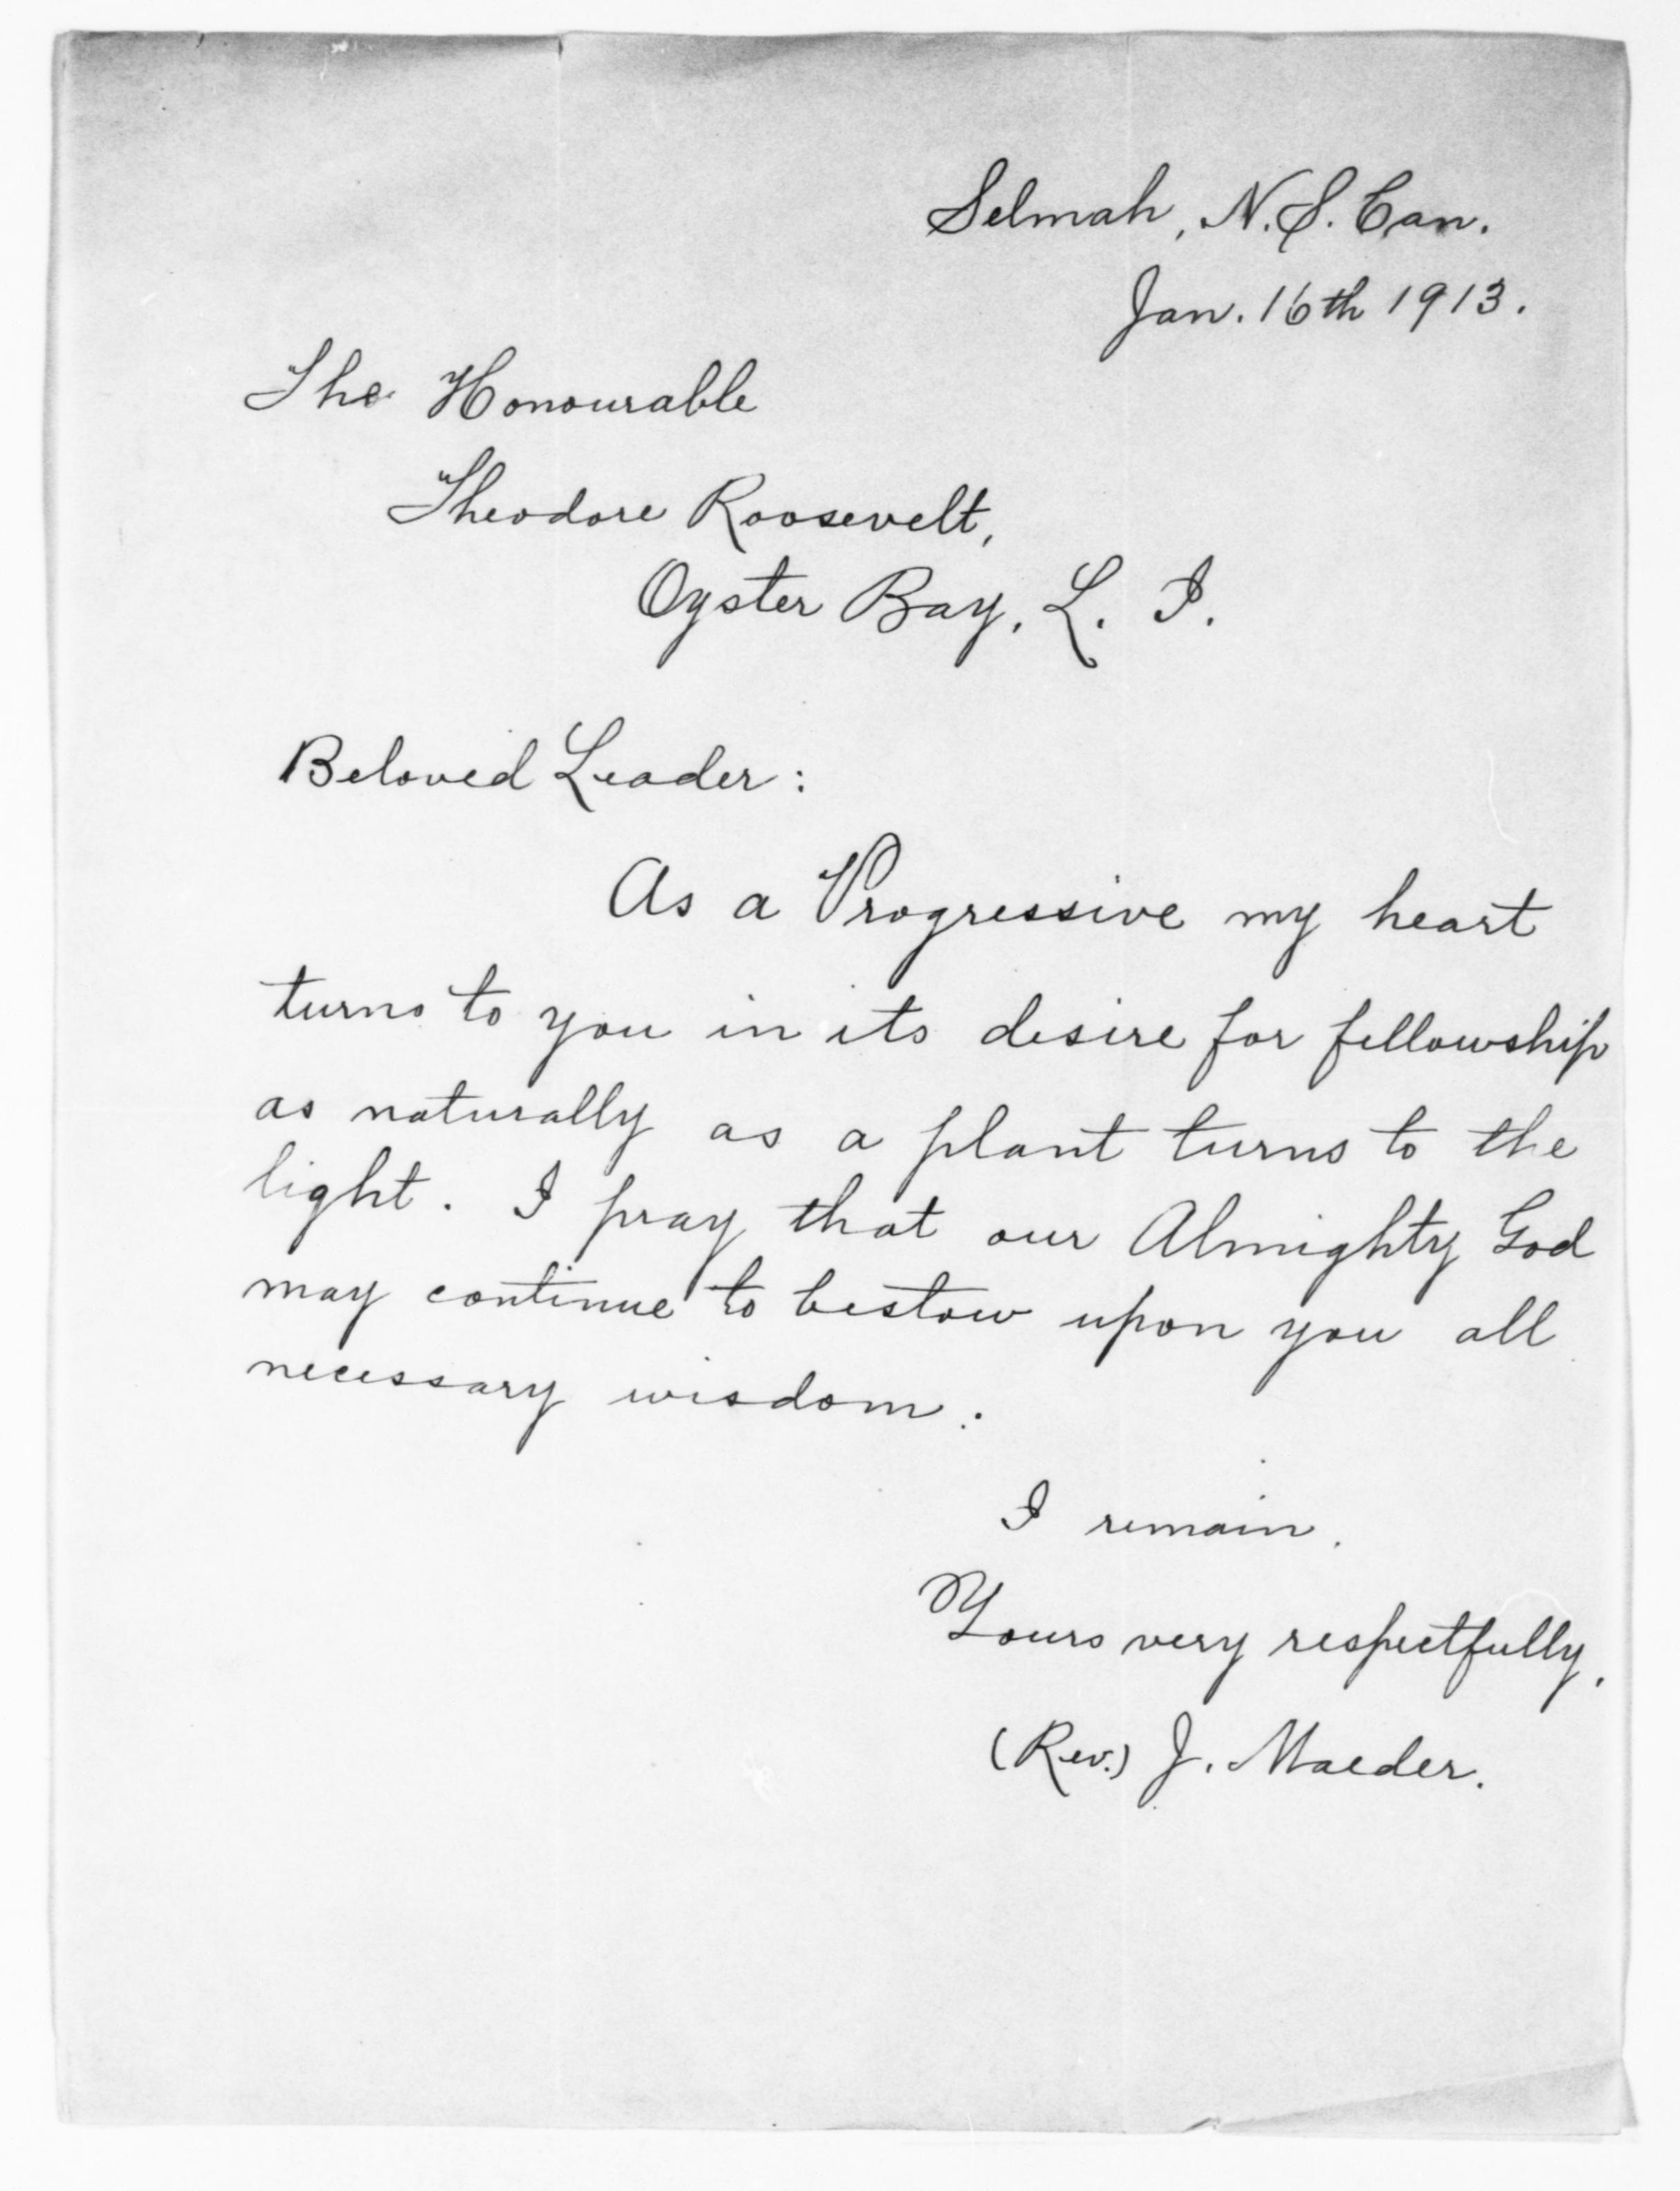 Selmah, N.S. Can.
Jan. 16th 1913.
The Honourable
Theodore Roosevelt,
Oyster Bay, L. I.
Beloved Leader:
As a Progressive my heart
turns to you in its desire for fellowship
as naturally as a plant turns to the
light. I pray that our Almighty God
may continue to bestow upon you all
necessary wisdom.
I remain,
Yours very respectfully,
(Rev.) J. Maeder.